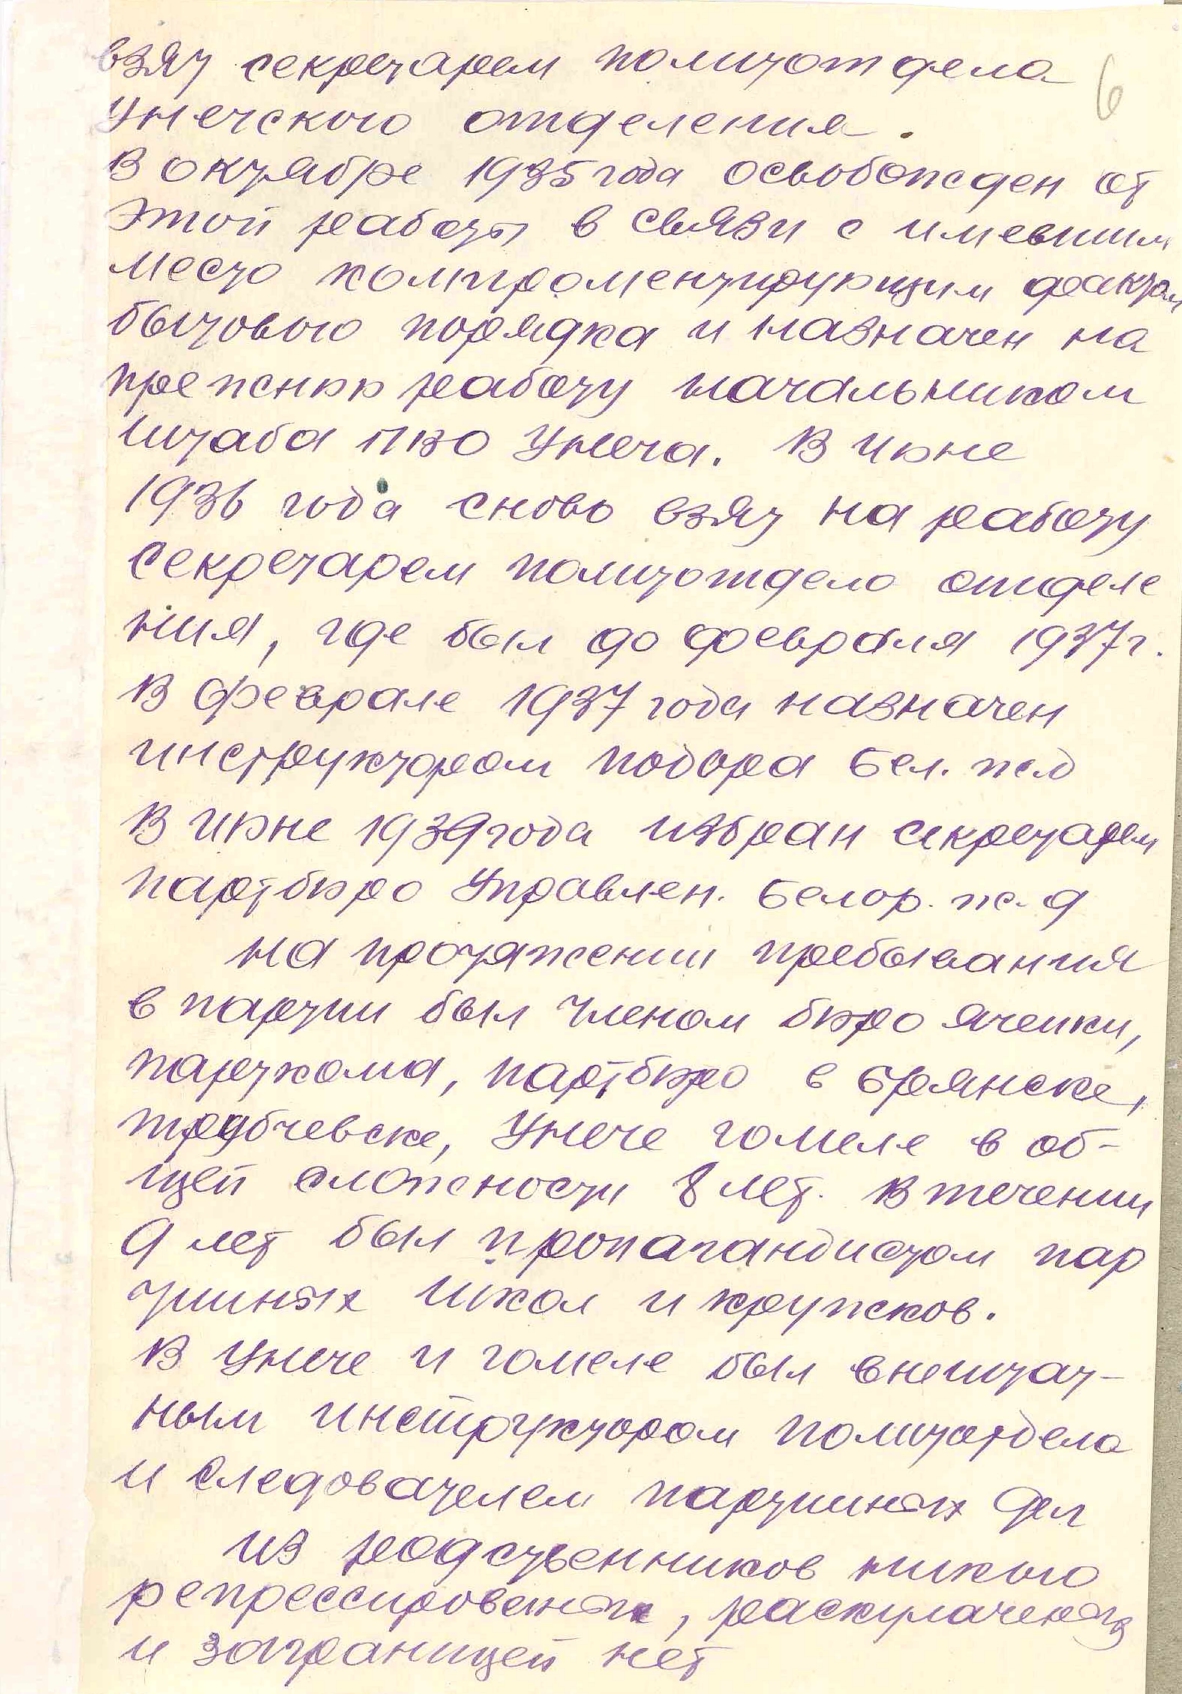 взят секретарем политотдела
6
Унечского отделения.
В октябре 1935 года освобожден от
этой работы в связи с имевшим
место компроментирующим фактом
бытового порядка и назначен на
прежнюю работу начальником
штаба ПВО Унеча. В июне
1936 года снова взят на работу
секретарем политотдела отделе
ния, где был до февраля 1937 г.
В феврале 1937 года назначен
инструктором Бел. ж.д
В июне 1939 года избран секретарем
партбюро Управлен. Белор. ж.д
на протяжении пребывания
в партии был членом бюро ячейки,
парткома, партбюро в Брянске,
Трубчевске, Унече Гомеле в об-
щей сложности 8 лет. В течении
9 лет был пропагандистом пар
тийных школ и кружков.
В Унече и Гомеле был внештат-
ным инструктором политотдела
и следователем партийных дел
из родственников никого
репрессированых, раскулаченых
и заграницей нет